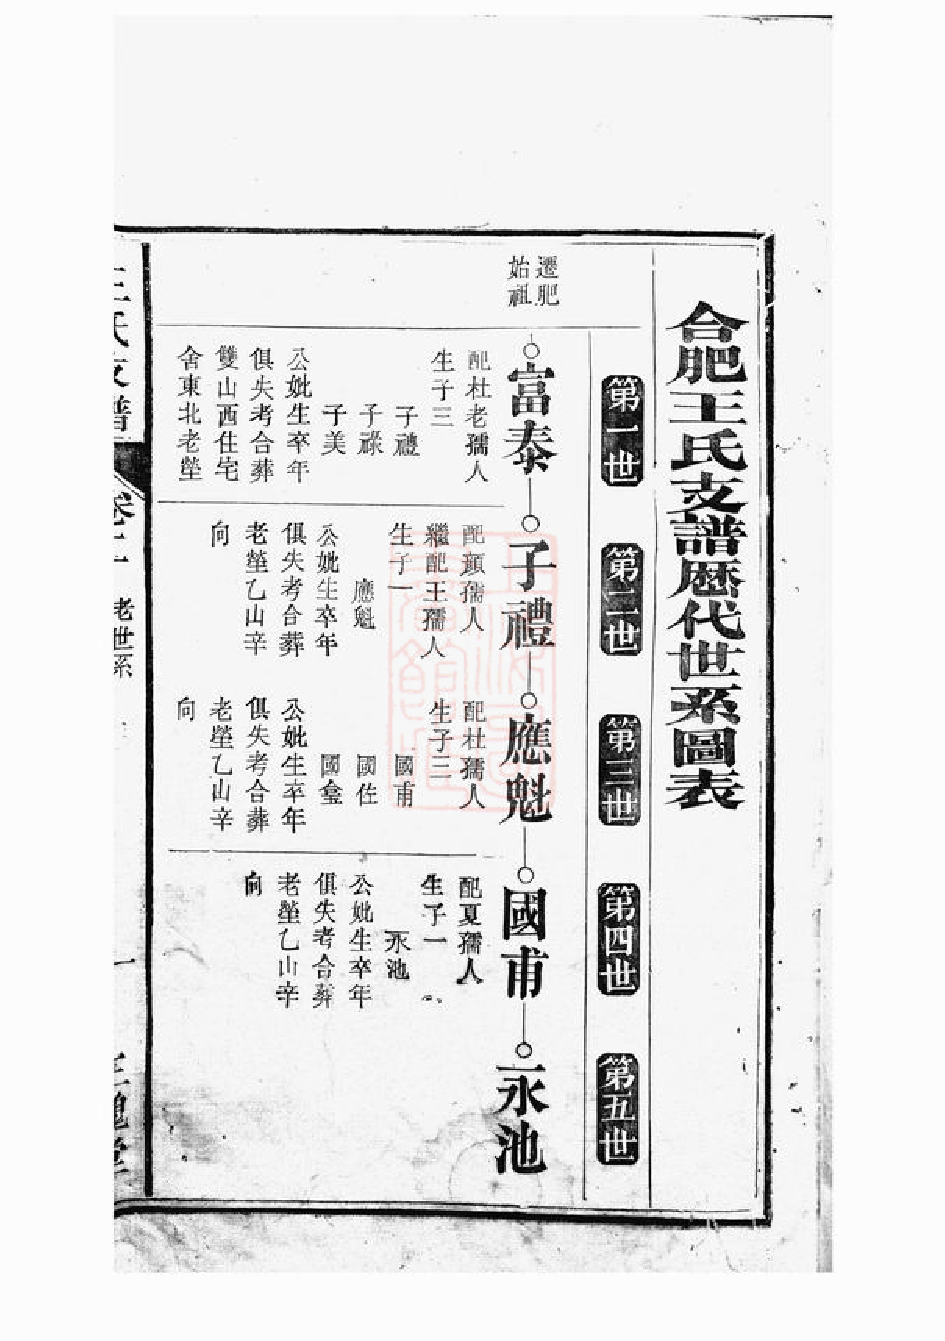 合肥王氏支譜歷代世系圖表
第一世
第二世
第三世
第四世
第五世
遷肥
始祖
富泰
配杜老孺人
生子三
子禮
子祿
子美
公妣生卒年
俱失考合葬
雙山西住宅
舍東北老塋
子禮
配顏孺人
繼配王孺人
生子一
應魁
公妣生卒年
俱失考合葬
老塋乙山辛
向
應魁
配杜孺人
生子三
國甫
國佐
國璽
公妣生卒年
俱失考合葬
老塋乙山辛
向
國甫
配夏孺人
生子一
永池
公妣生卒年
俱失考合葬
老塋乙山辛
向
永池
王氏支譜
卷二
老世系
一